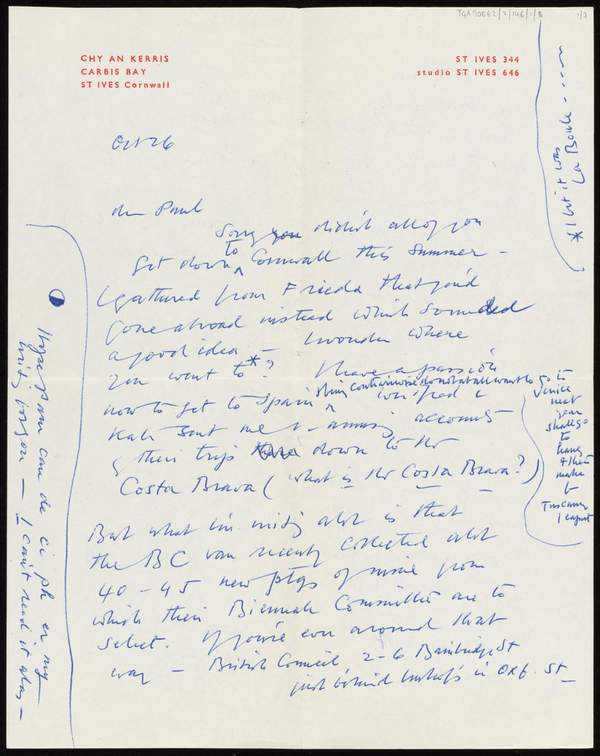 TGA
CHY AN KERRIS
CARBIS BAY
ST IVES Cornwall
ST IVES 344
studio ST IVES 646
Oct 26
dear Paul
Sorry you didn't all of you
get down to Cornwall this summer -
I gathered from Frieda that you'd
gone abroad instead which sounded
a good idea - I wonder where
you went to *? I have a passion
now to get to Spain
Kate sent me amusing accounts
of their trip down to the
Costa Brava (what is the Costa Brava?)
But what I'm writing abt is that
the BC van recently collected abt
40 - 45 new ptgs of mine from
which their Biennale Committee are to
select. If you're ever around that
way - British Council, 2-6 Bainbridge St
just behind in Oxf. St -
go to
Venice
next
year
shall go
to
hang
& then
make
for
Tuscany
I expect
* I bet it was
La Baule - - - -
I hope Pam can de ci ph er my
writing for you - I can't read it alas -